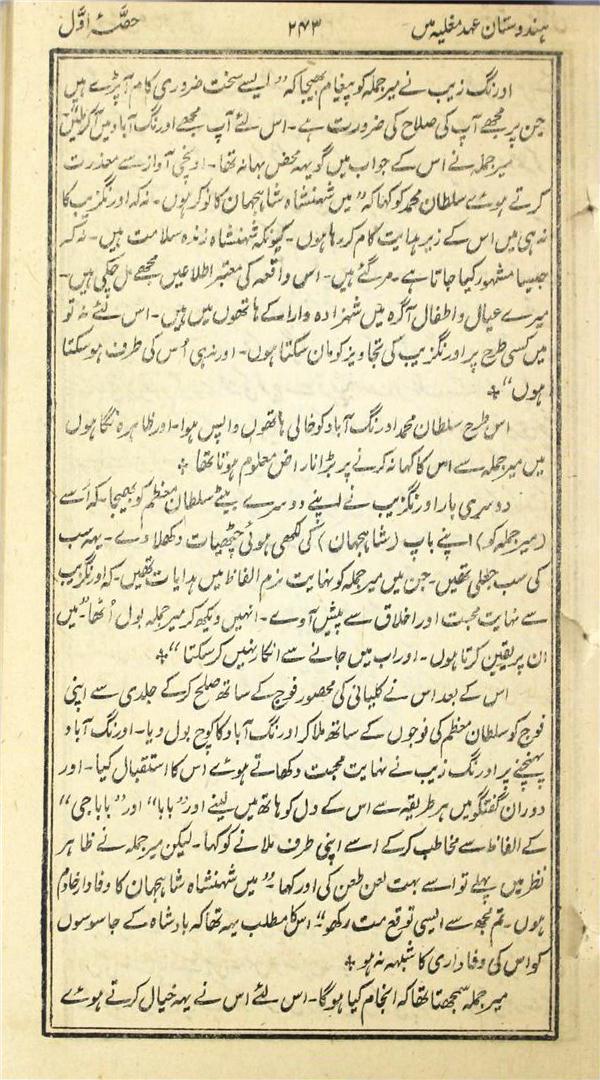 ہندوستان عہد مغلیہ میں ۲۴۳ حصّۂ اوّل
اورنگ زیب نے میر جملہ کو پیغام بھیجا کہ ”ایسے سخت ضروری کام آپڑے ہیں
جن پر مجھے آپ کی صلاح کی ضرورت ہے۔ اس لئے آپ مجھے اورنگ آباد میں آکر ملیں“
میر جملہ نے اس کے جواب میں گویہہ محض بہانہ تھا۔ اونچی آواز سے معذرت
کرتے ہوئے سلطان محمد کو کہا کہ ”میں شہنشاہ شاہجہان کا نوکر ہوں۔ نہ کہ اورنگزیب کا
نہ ہی میں اس کے زیر ہدایت کام کر رہا ہوں۔ کیونکہ شہنشاہ زندہ سلامت ہیں۔ نہ کہ
جیسا مشہور کیا جاتا ہے۔ مر گئے ہیں۔ اس واقعہ کی معتبر اطلاعیں مجھے مل چکی ہیں۔
میرے عیال و اطفال آگرہ میں شہزادہ دارا کے ہاتھوں میں ہیں۔ اس لئے نہ تو
میں کسی طرح پر اورنگزیب کی تجاویز کو مان سکتا ہوں۔ اور نہ ہی اُس کی طرف ہو سکتا
ہوں“ ÷
اس طرح سلطان محمد اورنگ آباد کو خالی ہاتھوں واپس ہوا۔ اور ظاہرہ نگاہوں
میں میر جملہ سے اس کا کہا نہ کرنے پر بڑا ناراض معلوم ہوتا تھا ÷
دوسری بار اورنگزیب نے اپنے دوسرے بیٹے سلطان معظم کو بھیجا۔ کہ اُسے
(میر جملہ کو) اپنے باپ (شاہجہان) کی لکھی ہوئی چٹھیات دکھلا دے۔ یہہ سب
کی سب جعلی تھیں۔ جن میں میر جملہ کو نہایت نرم الفاظ میں ہدایات تھیں۔ کہ اورنگزیب
سے نہایت محبت اور اخلاق سے پیش آوے۔ انہیں دیکھ کر میر جملہ بول اُٹھا۔ ”میں
ان پر یقین کرتا ہوں۔ اور اب میں جانے سے انکار نہیں کر سکتا“ ÷
اس کے بعد اس نے کلیانی کی محصور فوج کے ساتھ صلح کرکے جلدی سے اپنی
فوج کو سلطان معظم کی فوجوں کے ساتھ ملا کر اورنگ آباد کا کوچ بول دیا۔ اورنگ آباد
پہنچنے پر اورنگ زیب نے نہایت محبت دکھاتے ہوئے اس کا استقبال کیا۔ اور
دوران گفتگو میں ہر طریقہ سے اس کے دل کو ہاتھ میں لینے اور ”بابا“ اور ”بابا جی“
کے الفاظ سے مخاطب کرکے اسے اپنی طرف ملانے کو کہا۔ لیکن میر جملہ نے ظاہر
نظر میں پہلے تو اسے بہت لعن طعن کی اور کہا۔ ”میں شہنشاہ شاہجہان کا وفادار خادم
ہوں۔ تم مجھ سے ایسی توقع مت رکھو“۔ اس کا مطلب یہہ تھا کہ بادشاہ کے جاسوسوں
کو اس کی وفاداری کا شبہہ نہ ہو ÷
میر جملہ سمجھتا تھا کہ انجام کیا ہوگا۔ اس لئے اس نے یہہ خیال کرتے ہوئے